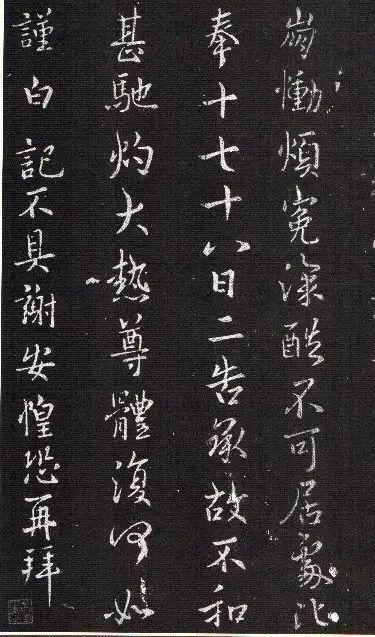 崩慟煩冤深酷不可居處比
奉十七十八日二告承故不和
甚馳灼大熱尊體復何如
謹白記不具謝安惶恐再拜